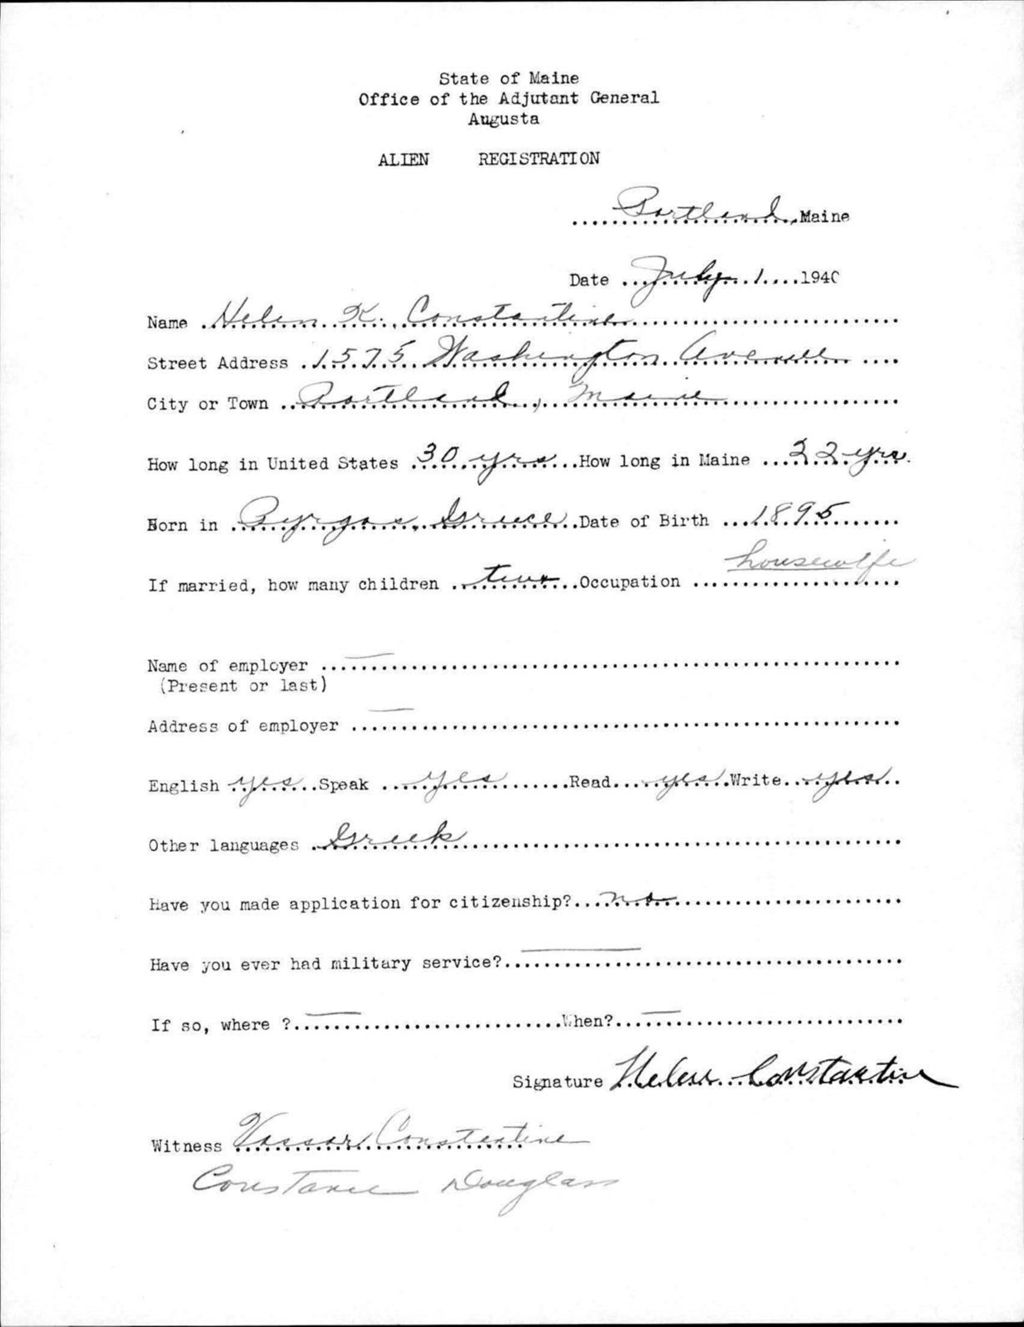 State of Maine
Office of the Adjutant General
Augusta
ALIEN REGISTRATION
Portland, Maine
Date July 1 1940
Name Helen K. Constantine
Street Address 1575 Washington Avenue
City or Town Portland, Maine
How long in United States 30 yrs How long in Maine 22 yrs.
Born in Pyrgos, Greece Date of Birth 1895
If married, how many children two Occupation housewife
Name of employer
(Present or last)
Address of employer
English yes Speak yes Read yes Write yes
Other languages Greek
Have you made application for citizenship? no
Have you ever had military service?
If so, where ? When?
Signature Helen Constantine
Witness Vassar Constantine
Constance Douglass